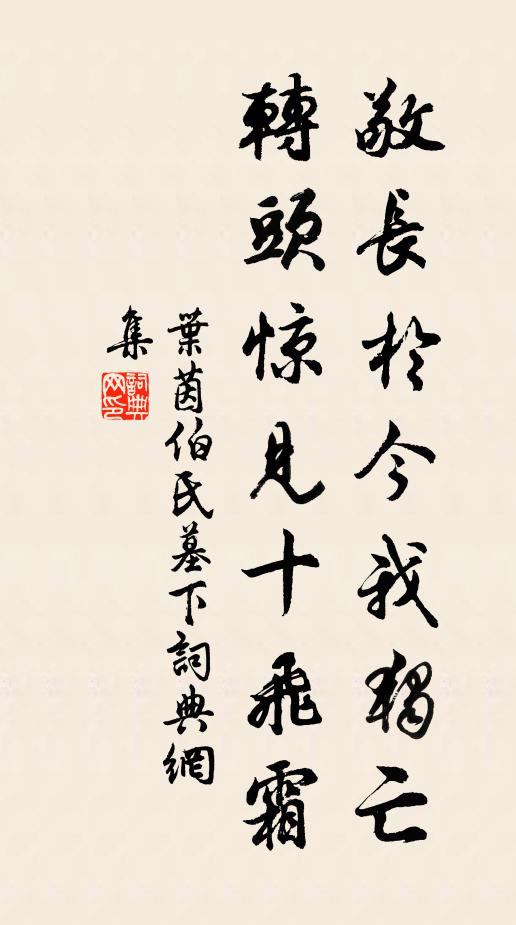 敬長於今我獨亡
轉頭惊見十飛霜
葉茵伯氏墓下詞典網
集
詞典网印